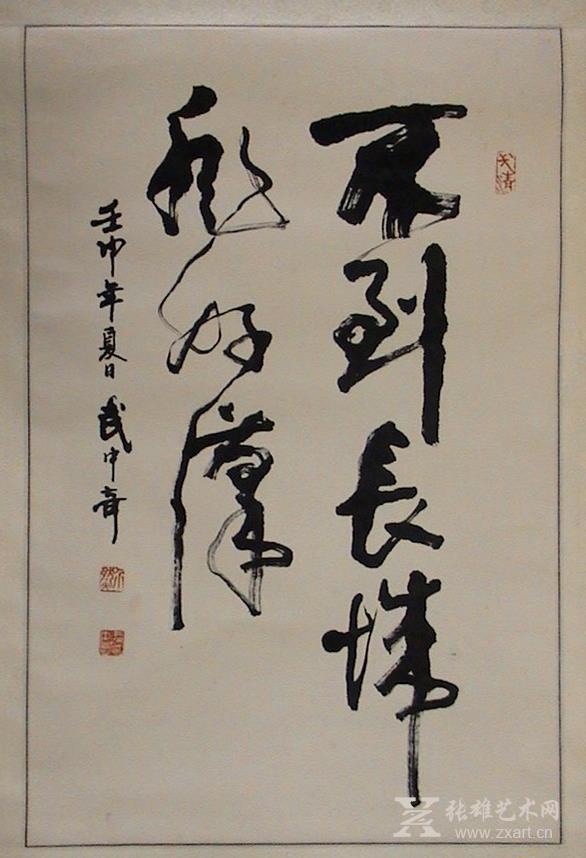 不到长城
非好汉
壬申年夏日 武中奇
张雄艺术网
www.zxart.cn